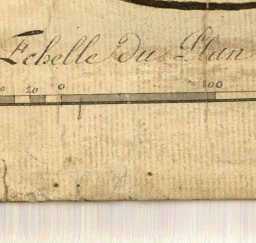 Echelle du Plan
20 0 100